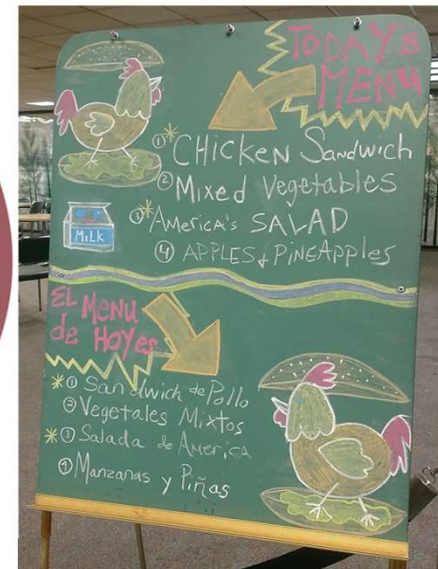 TODAY'S
MENU
①* CHICKEN SANDWICH
② Mixed Vegetables
③* AMERICA'S SALAD
④ APPLES & PINEAPPLES
MILK
EL MENU
de HOYes
* ① Sandwich de Pollo
② Vegetales Mixtos
* ③ Salada de America
④ Manzanas y Piñas